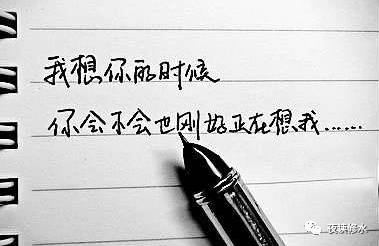 我想你的时候
你会不会也刚好正在想我......
夜珠修水